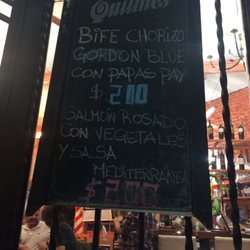 Quilmes
BIFE CHORIZO
GORDON BLUE
CON PAPAS PAY
$ 210
SALMÓN ROSADO
CON VEGETALES
Y SALSA
MEDITERRANEA